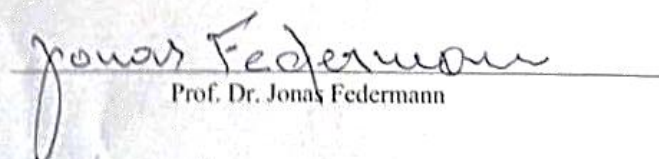 Jonas Federmann
Prof. Dr. Jonas Federmann